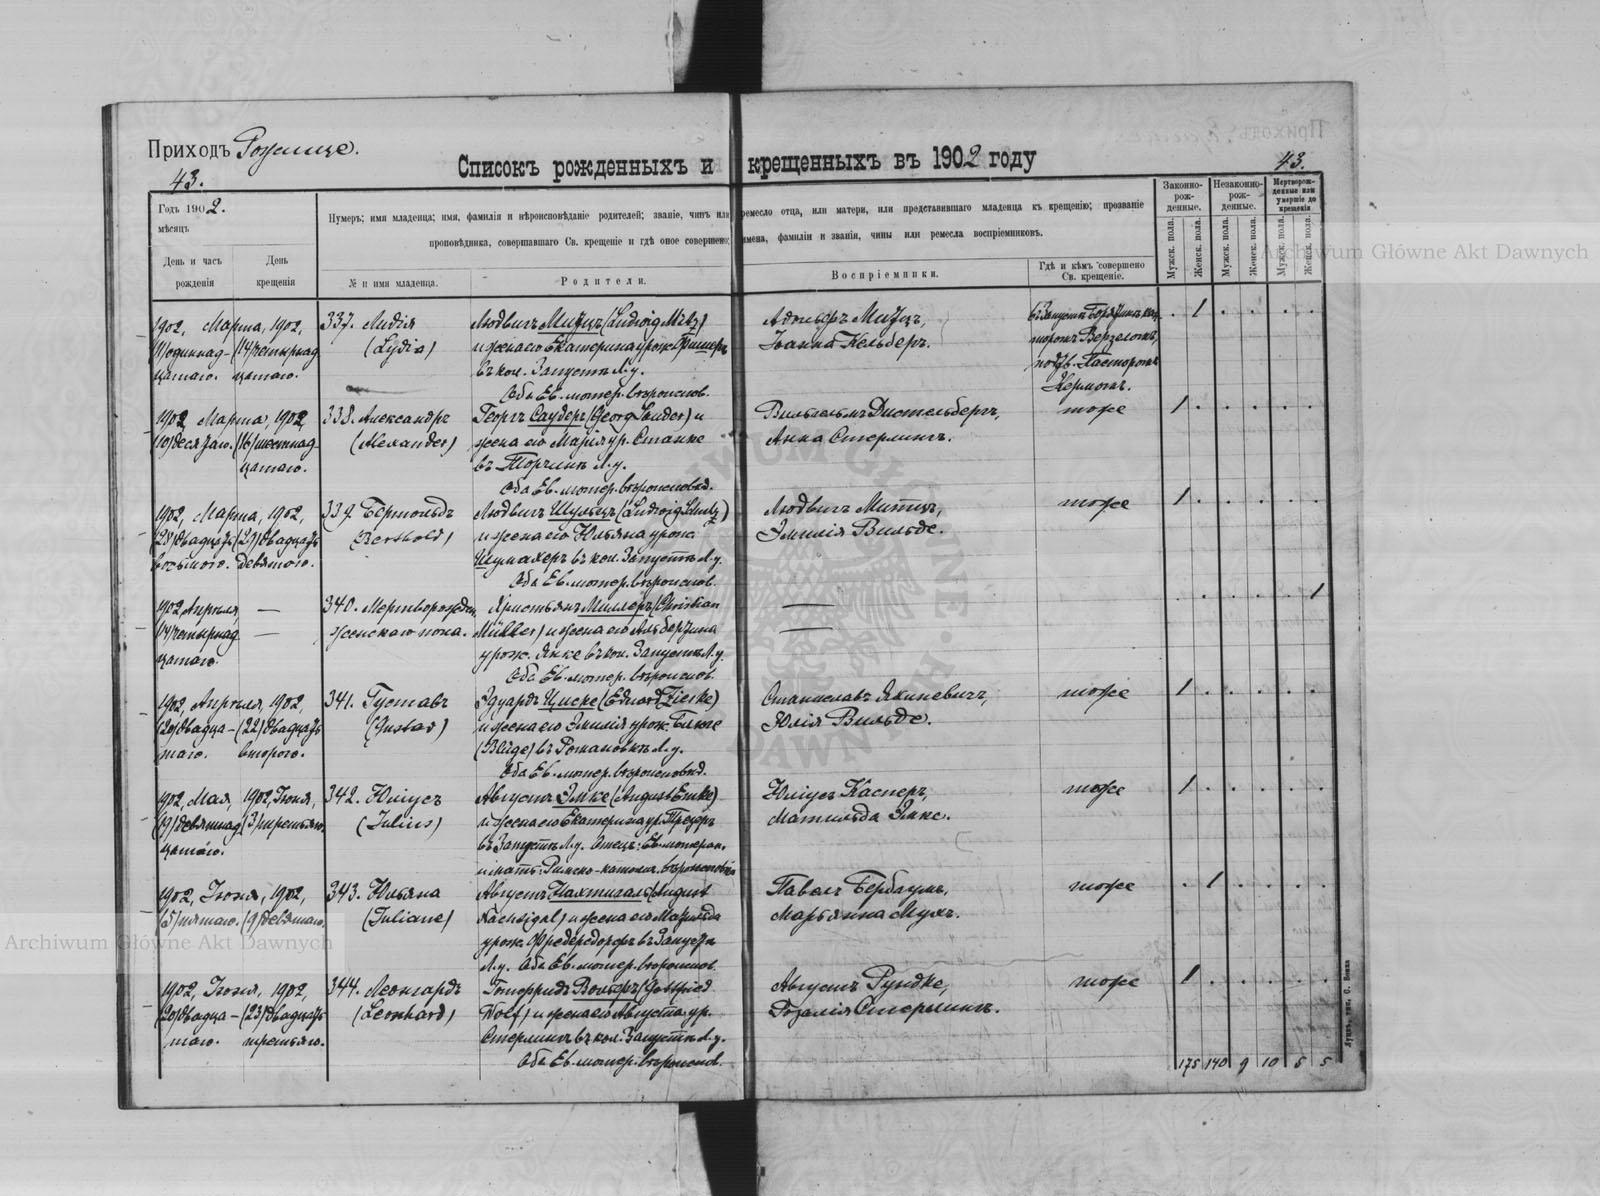 Приходъ Рожище.
43.
Списокъ рожденныхъ и крещенныхъ въ 1902 году
43.
Годъ 1902.
мѣсяцъ
День и часъ рожденія
День крещенія
Нумеръ; имя младенца; имя, фамилія и вѣроисповѣданіе родителей; званіе, чинъ или ремесло отца, или матери, или представившаго младенца къ крещенію; прозваніе
проповѣдника, совершавшаго Св. крещеніе и гдѣ оное совершено; имена, фамиліи и званія, чины или ремесла воспріемниковъ.
№ и имя младенца.
Родители.
Воспріемники.
Гдѣ и кѣмъ совершено Св. крещеніе.
Законно-рож-денные.
Незаконно-рож-денные.
Мертворож-денные или умершіе до крещенія
Мужск. пола.
Женск. пола.
Мужск. пола.
Женск. пола.
Мужск. пола.
Женск. пола.
1902, Марта, 1902,
(11) одиннад- (14) четырнад
цатаго. цатаго.
337. Лидія
(Lydia)
Людвигъ Митцъ (Ludwig Mitz)
и жена его Екатерина урож. Фишеръ
въ кол. Запустъ Л. у.
Оба Ев. лютер. вѣроиспов.
Адольфъ Митцъ,
Іоанна Кельберъ.
1
1902, Марта, 1902,
(10) десятаго. (16) шестнад-
цатаго.
338. Александръ
(Alexander)
Георгъ Саудеръ (Georg Sauder) и
жена его Марія ур. Станке
въ Торчинъ Л. у.
Оба Ев. лютер. вѣроисповѣд.
Вильгельмъ Дистельбергъ,
Анна Стерлингъ.
тоже
1
1902, Марта, 1902,
(28) двадцать (29) двадцать
восьмого. девятаго.
339. Бертольдъ
(Berthold)
Людвигъ Шульцъ (Ludwig Schulz)
и жена его Юльяна урож.
Шумахеръ въ кол. Запустъ Л. у.
Оба Ев. лютер. вѣроиспов.
Людвигъ Митцъ,
Эмилія Вильде.
тоже
1
1902, Апрѣля,
(14) четырнад
цатаго.
340. Мертворожден.
женскаго пола.
Христьянъ Миллеръ (Christian
Müller) и жена его Альбертина
урож. Янке въ кол. Запустъ Л. у.
Оба Ев. лютер. вѣроиспов.
1
1902, Апрѣля, 1902,
(20) двадца- (22) двадцать
таго. второго.
341. Густавъ
(Gustav)
Эдуардъ Циске (Eduard Zieske)
и жена его Эмилія урож. Блюге
(Blüge) въ Романовкѣ Л. у.
Оба Ев. лютер. вѣроисповѣд.
Станиславъ Якиневичъ,
Юлія Вильде.
тоже
1
1902, Мая, 1902, Іюня,
(19) девятнад (3) третьяго.
цатаго.
342. Юліусъ
(Julius)
Августъ Эмке (August Emke)
и жена его Екатерина ур.
въ Запустъ Л. у. Отецъ: Ев. лютеран.
и мать: Римско-католич. вѣроисповѣд.
Юліусъ Касперъ,
Матильда Эмке.
тоже
1
1902, Іюня, 1902,
(5) пятаго. (9) девятаго.
343. Юльяна
(Juliane)
Августъ Нахтигаль (August
Nachtigal) и жена его Матильда
урож. Фредерсдорфъ въ Запустъ
Л. у. Оба Ев. лютер. вѣроиспов.
Павелъ Бербаумъ,
Марьянна Мухъ.
тоже
1
1902, Іюня, 1902,
(20) двадца- (23) двадцать
таго. третьяго.
344. Леонгардъ
(Leonhard)
Готфридъ Вольфъ (Gottfried
Wolf) и жена его Августа ур.
Стерлингъ въ кол. Запустъ Л. у.
Оба Ев. лютер. вѣроиспов.
Августъ Рундке,
Розалія Стерлингъ.
тоже
1
175 140 9 10 8 5
Archiwum Główne Akt Dawnych
Archiwum Główne Akt Dawnych